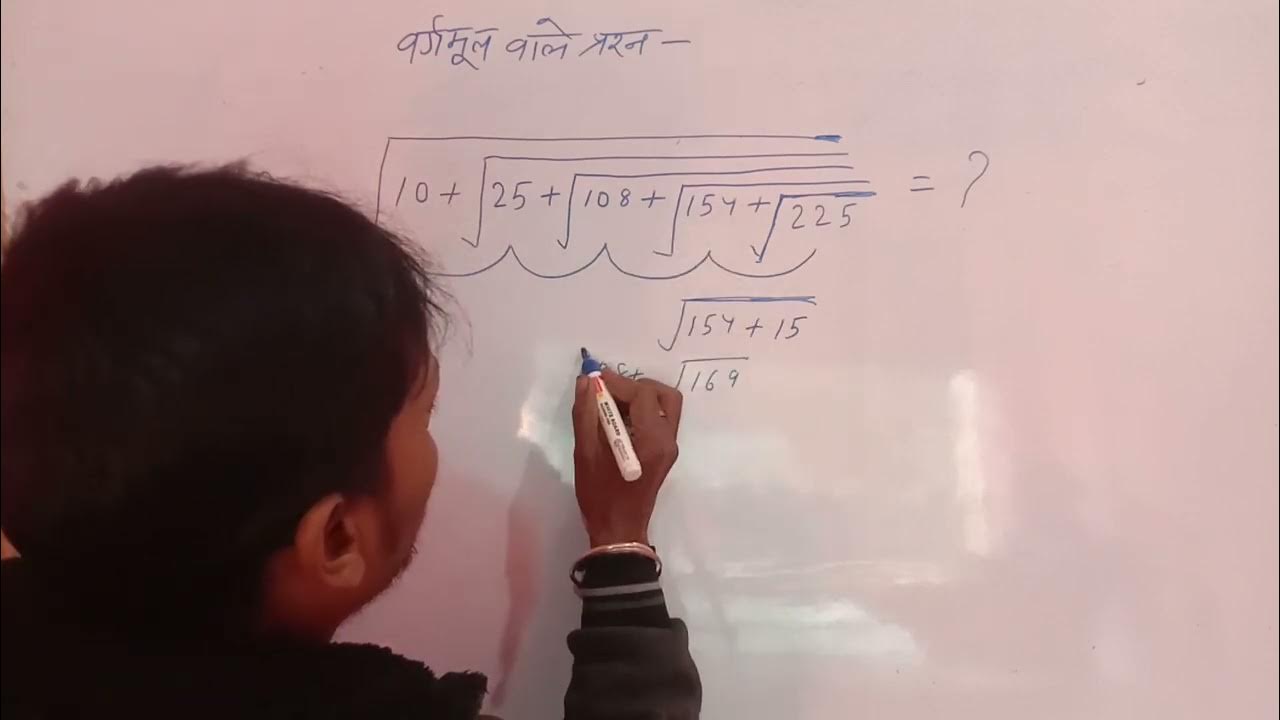 वर्गमूल वाले प्रश्न –
√10 + √25 + √108 + √154 + √225 = ?
√154 + 15
√169